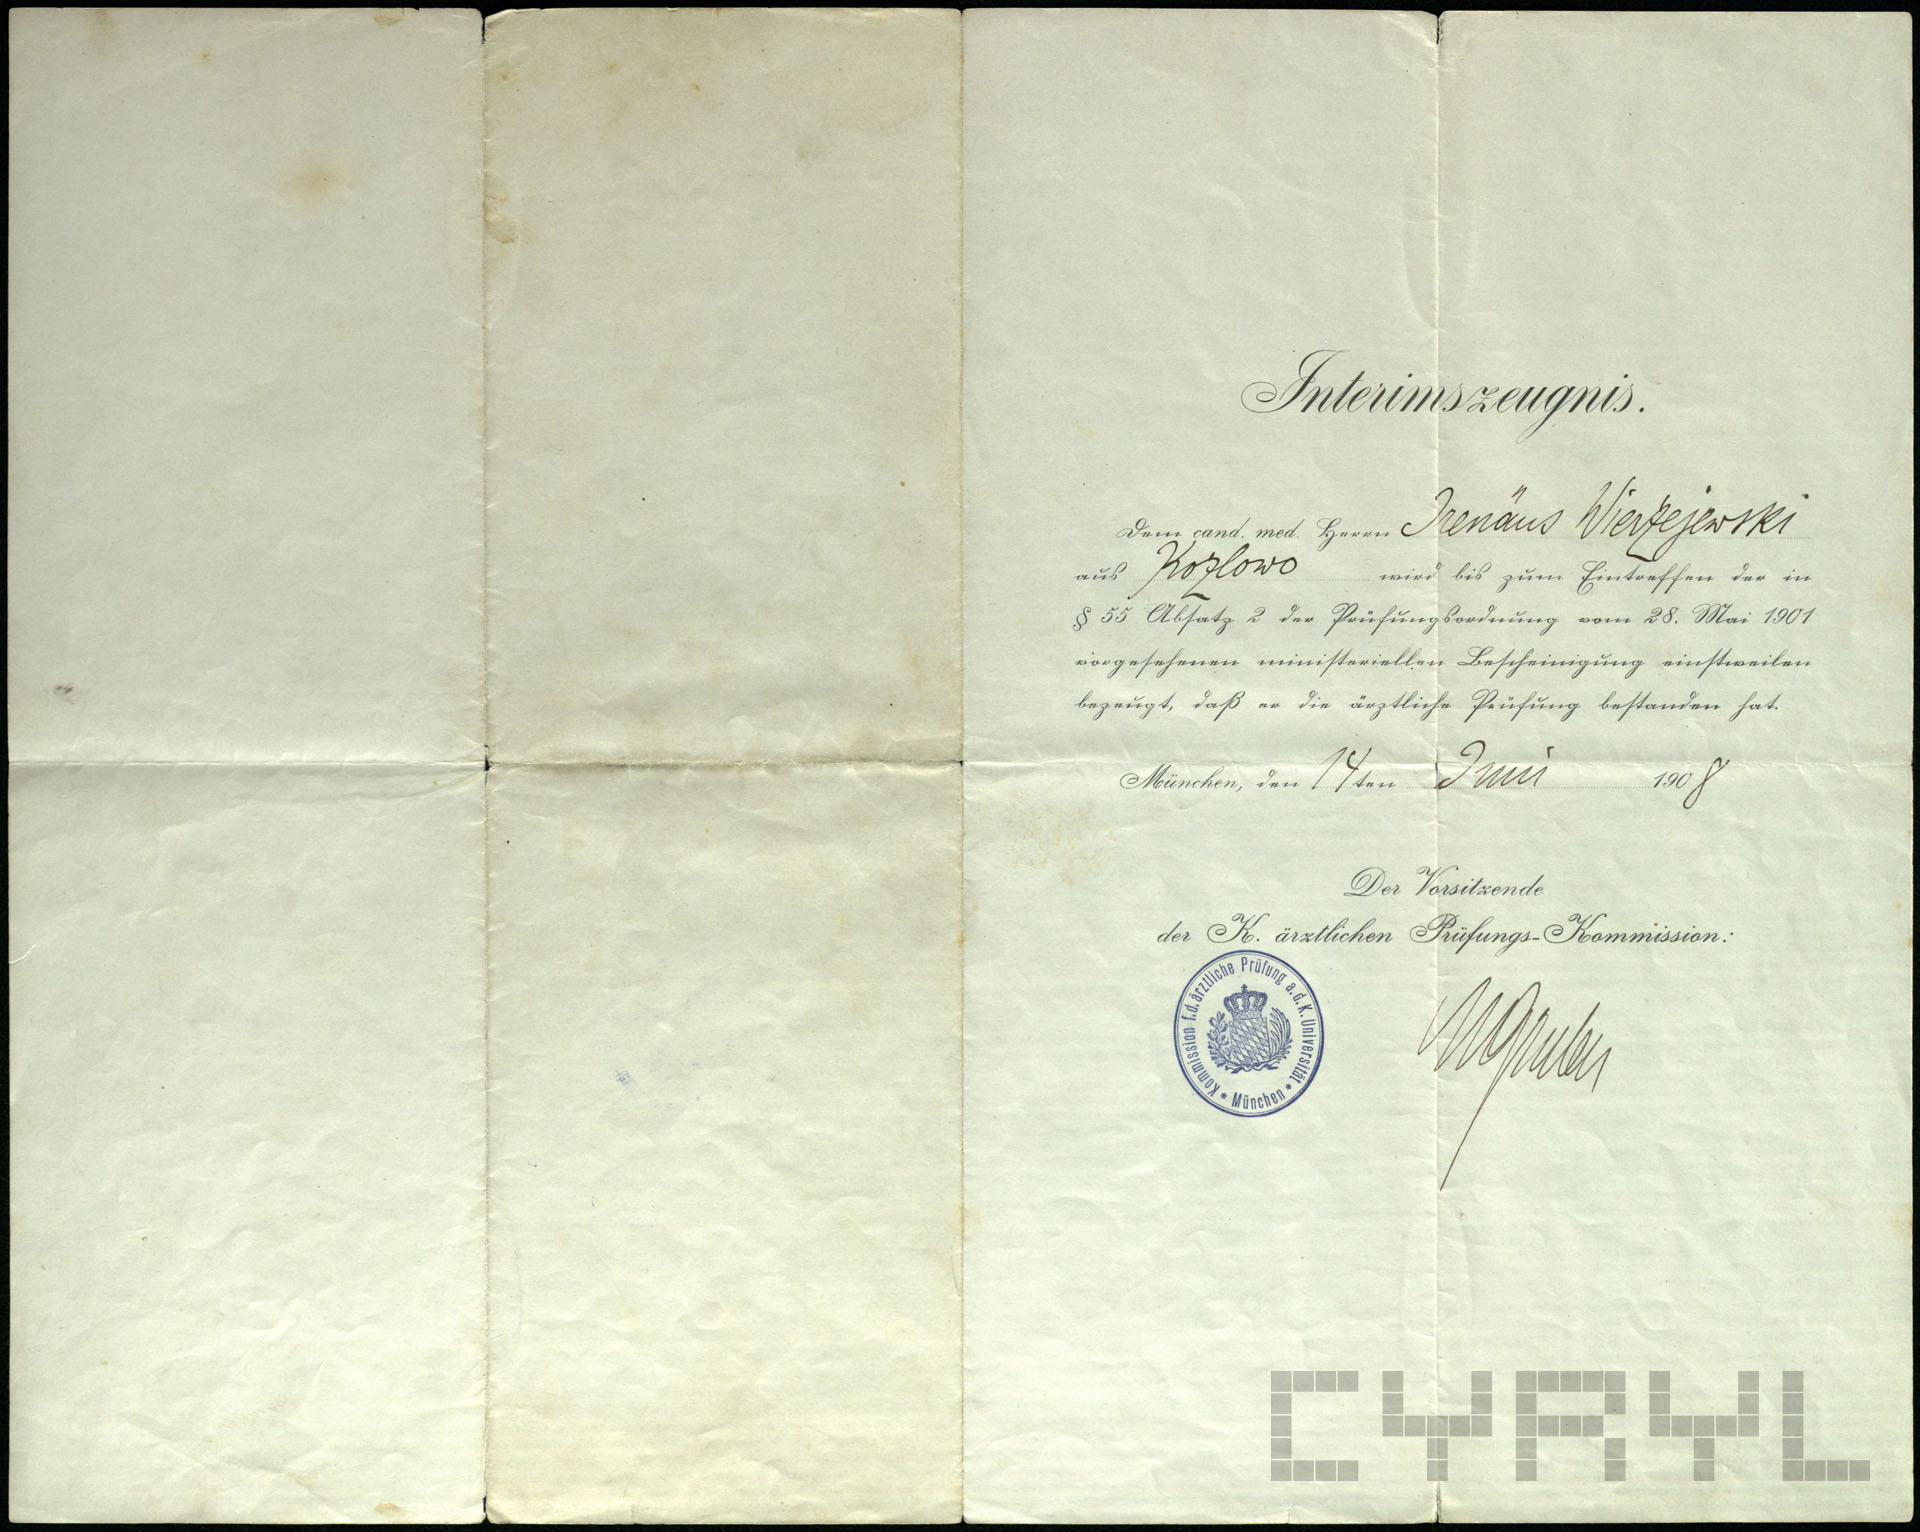 Interimszeugnis.
Dem cand. med. Herrn Irenäus Wierzejewski
aus Kozlowo wird bis zum Eintreffen der in
§ 55 Absatz 2 der Prüfungsordnung vom 28. Mai 1901
vorgesehenen ministeriellen Bescheinigung einstweilen
bezeugt, daß er die ärztliche Prüfung bestanden hat.
München, den 14ten Juni 1908
Der Vorsitzende
der K. ärztlichen Prüfungs-Kommission:
Kommission f.d. ärztliche Prüfung a.d.K. Universität * München *
MGruber
CYRYL